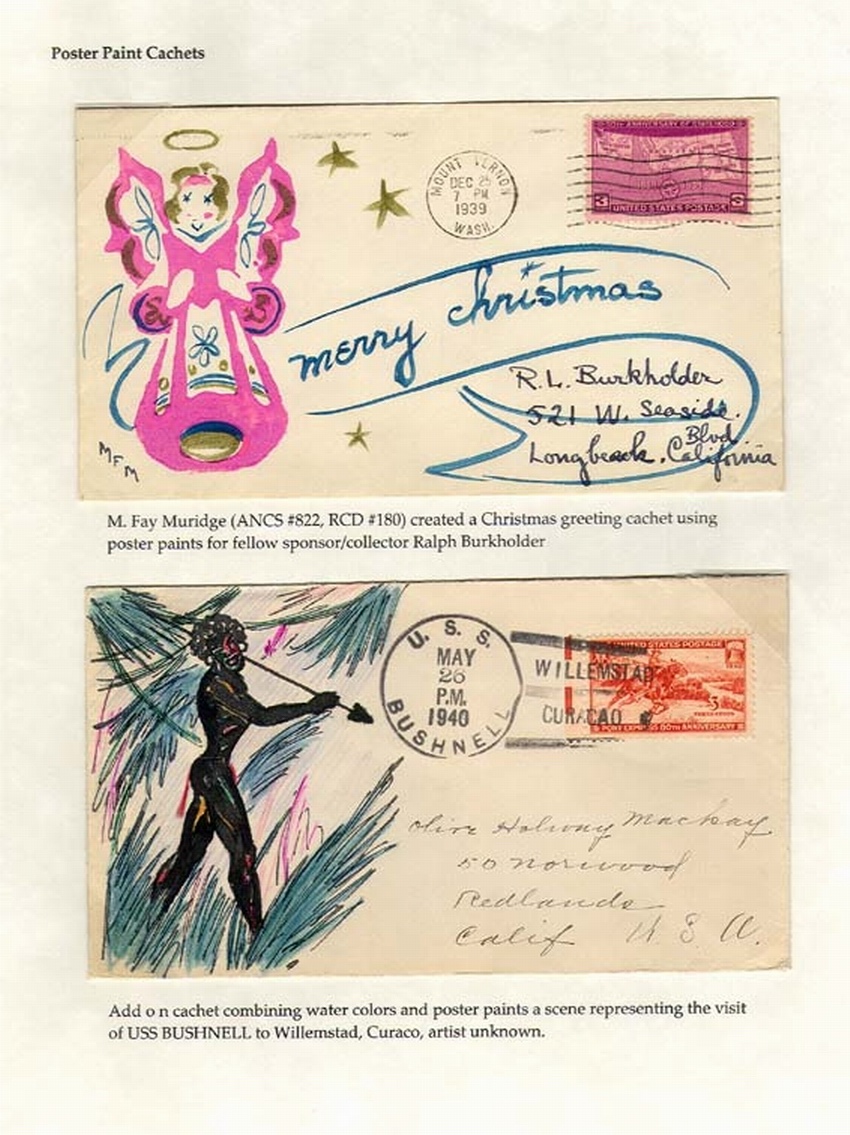 Poster Paint Cachets
MOUNT VERNON
DEC 25
7 PM
1939
WASH.
50TH ANNIVERSARY OF STATEHOOD
3
UNITED STATES POSTAGE
merry christmas
R. L. Burkholder
521 W. Seaside.
Blvd
Longbeach. California
MFM
M. Fay Muridge (ANCS #822, RCD #180) created a Christmas greeting cachet using
poster paints for fellow sponsor/collector Ralph Burkholder
U. S. S.
MAY
26
P.M.
1940
BUSHNELL
WILLEMSTAD
CURACAO
UNITED STATES POSTAGE
3
PONY EXPRESS 80TH ANNIVERSARY
Olive Holway Mackay
50 Norwood
Redlands
Calif U. S. A.
Add o n cachet combining water colors and poster paints a scene representing the visit
of USS BUSHNELL to Willemstad, Curaco, artist unknown.